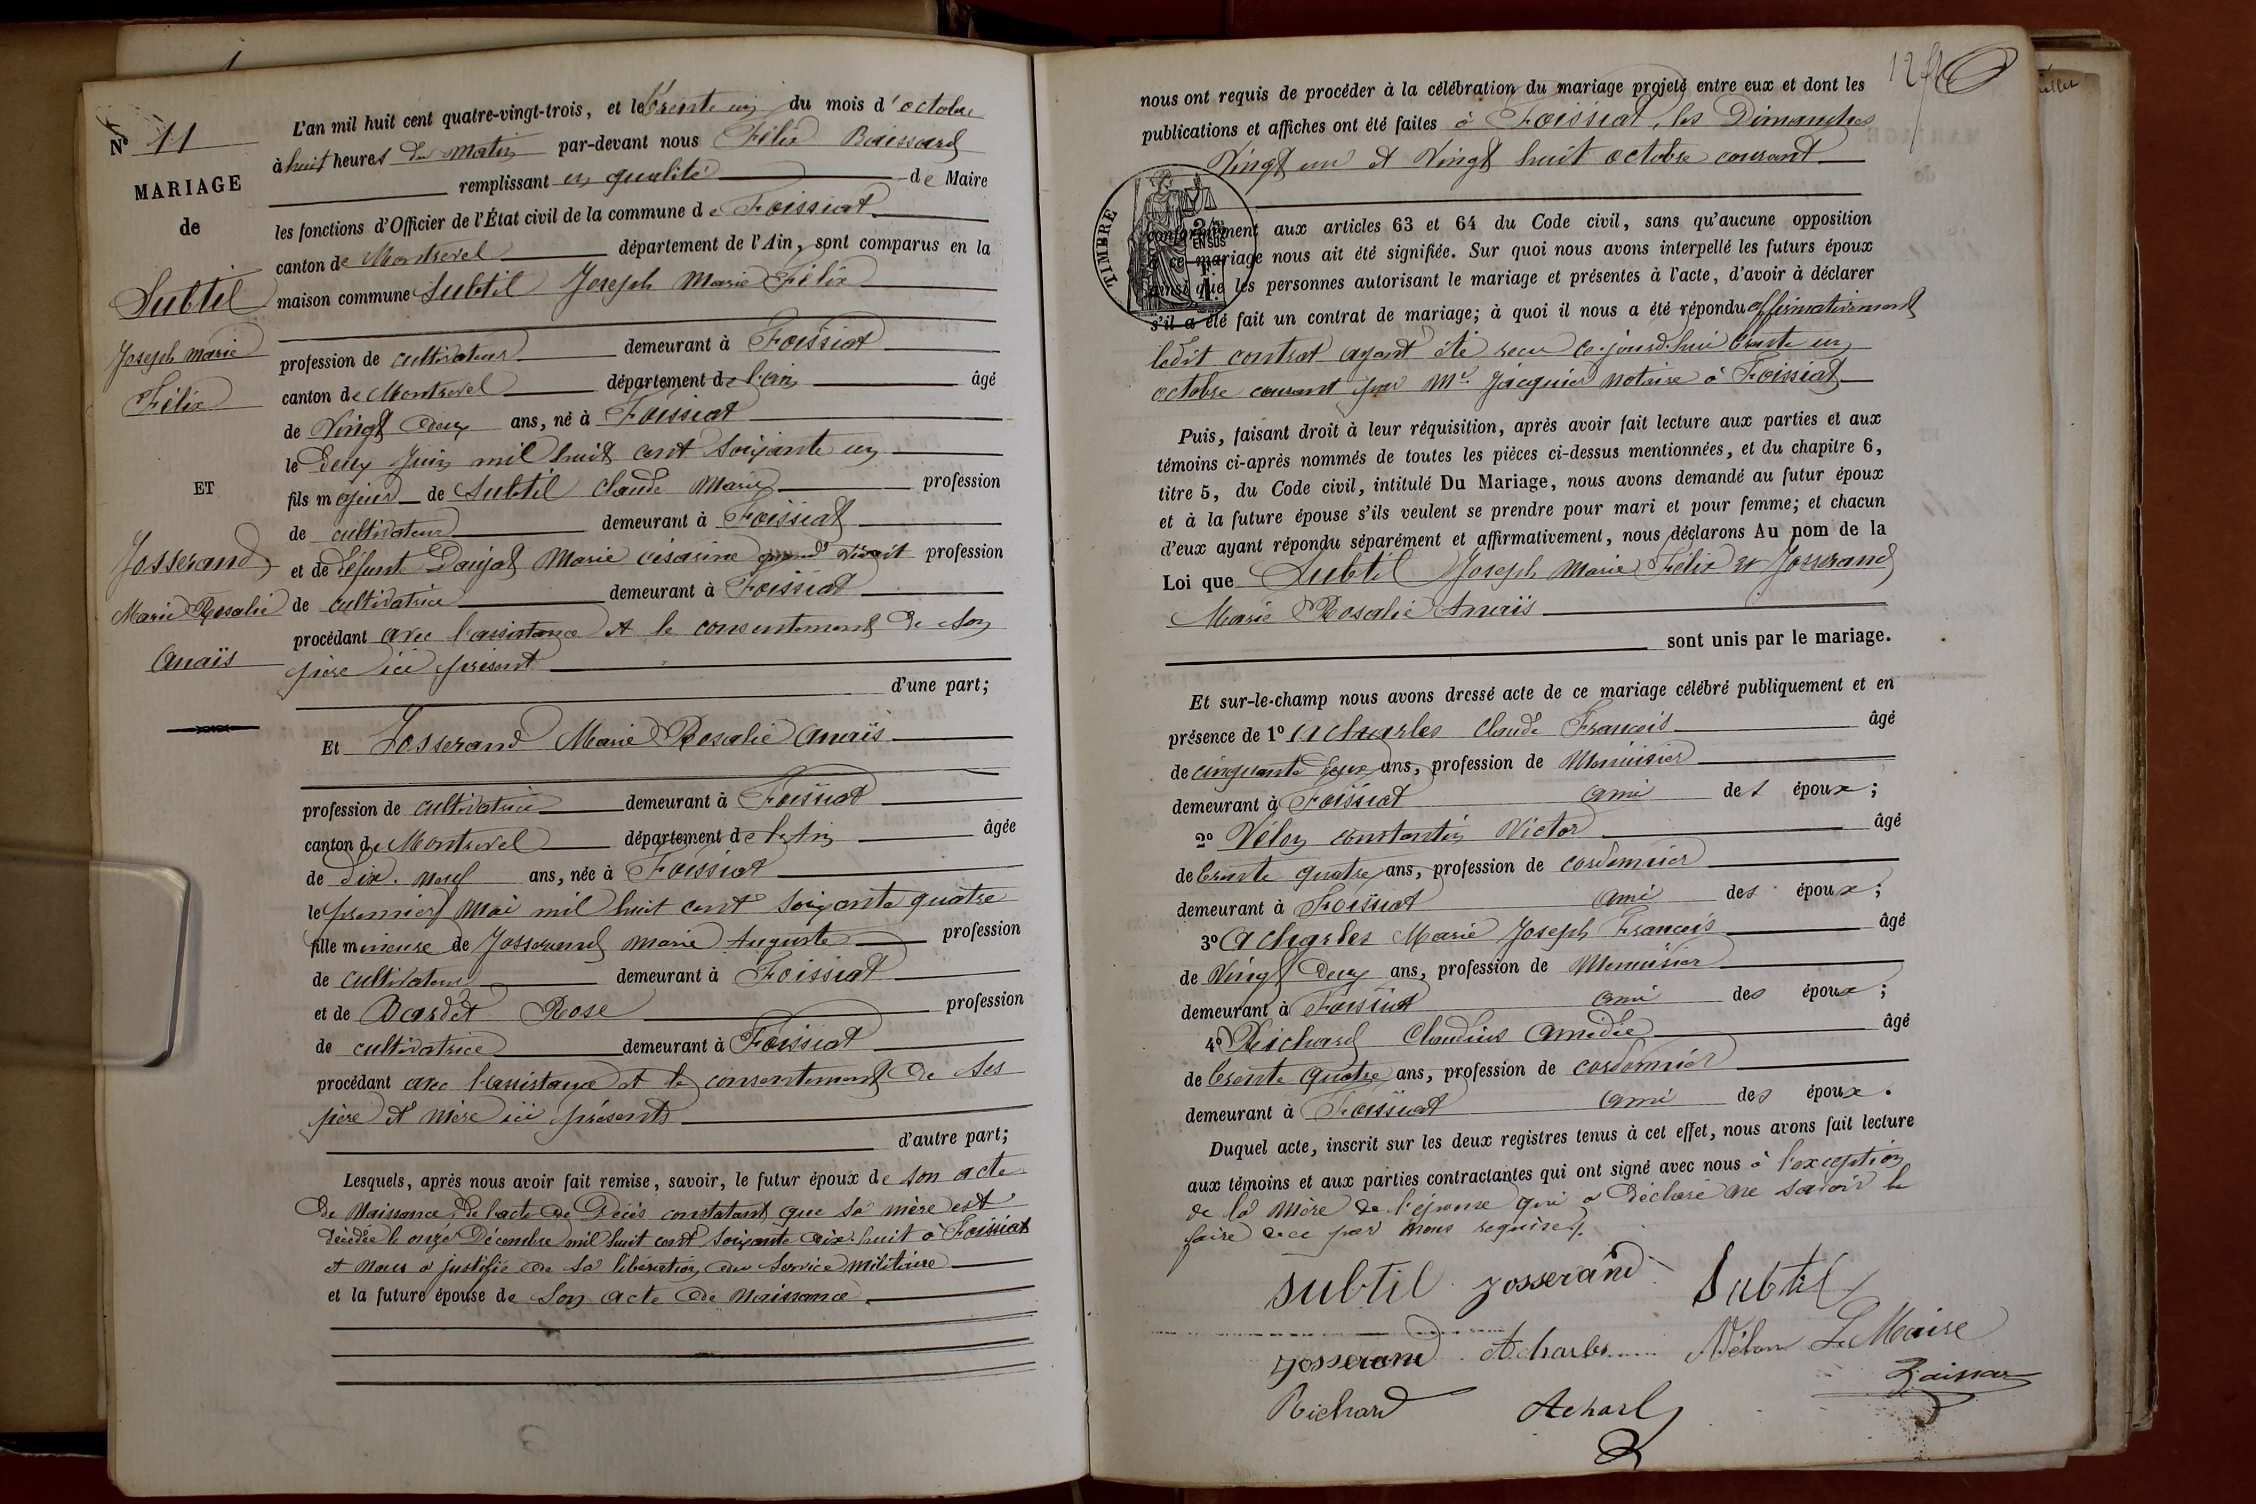 N° 11
MARIAGE
de
Subtil
Joseph Marie
Félix
ET
Josserand
Marie Rosalie
Anaïs
L'an mil huit cent quatre-vingt-trois, et le trente un du mois d'octobre
à huit heures du matin par-devant nous Félix
remplissant en qualité de Maire
les fonctions d'Officier de l'État civil de la commune de Foissiat
canton de Montrevel département de l'Ain, sont comparus en la
maison commune Subtil Joseph Marie Félix
profession de cultivateur demeurant à Foissiat
canton de Montrevel département de l'ain âgé
de Vingt deux ans, né à Foissiat
le deux Juin mil huit cent soixante un
fils majeur de Subtil Claude Marie profession
de cultivateur demeurant à Foissiat
et de défunte Daujat Marie césarine quand vivait profession
de cultivatrice demeurant à Foissiat
procédant avec l'assistance et le consentement de son
père ici présent
d'une part;
Et Josserand Marie Rosalie Anaïs
profession de cultivatrice demeurant à Foissiat
canton de Montrevel département de l'Ain âgée
de dix-neuf ans, née à Foissiat
le premier Mai mil huit cent soixante quatre
fille mineure de Josserand Marie Auguste profession
de cultivateur demeurant à Foissiat
et de Bardet Rose profession
de cultivatrice demeurant à Foissiat
procédant avec l'assistance et le consentement de ses
père et mère ici présents
d'autre part;
Lesquels, après nous avoir fait remise, savoir, le futur époux de son acte
de Naissance, de l'acte de Décès constatant que sa mère est
décédée le onze Décembre mil huit cent soixante dix-huit à Foissiat
et nous a justifié de sa libération du service militaire
et la future épouse de son acte de Naissance.
nous ont requis de procéder à la célébration du mariage projeté entre eux et dont les
publications et affiches ont été faites à Foissiat, les Dimanches
Vingt un et Vingt huit octobre courant
TIMBRE
2/10es
EN SUS
conformément aux articles 63 et 64 du Code civil, sans qu'aucune opposition
à ce mariage nous ait été signifiée. Sur quoi nous avons interpellé les futurs époux
ainsi que les personnes autorisant le mariage et présentes à l'acte, d'avoir à déclarer
s'il a été fait un contrat de mariage; à quoi il nous a été répondu affirmativement
ledit contrat ayant été reçu ce-jourd'hui trente un
octobre courant par Me. Jacquier Notaire à Foissiat
Puis, faisant droit à leur réquisition, après avoir fait lecture aux parties et aux
témoins ci-après nommés de toutes les pièces ci-dessus mentionnées, et du chapitre 6,
titre 5, du Code civil, intitulé Du Mariage, nous avons demandé au futur époux
et à la future épouse s'ils veulent se prendre pour mari et pour femme; et chacun
d'eux ayant répondu séparément et affirmativement, nous déclarons Au nom de la
Loi que Subtil Joseph Marie Félix et Josserand
Marie Rosalie Anaïs
sont unis par le mariage.
Et sur-le-champ nous avons dressé acte de ce mariage célébré publiquement et en
présence de 1° Acharles Claude François âgé
de cinquante deux ans, profession de Menuisier
demeurant à Foissiat ami des époux;
2° Vélon constantin Victor âgé
de trente quatre ans, profession de cordonnier
demeurant à Foissiat ami des époux;
3° Acharles Marie Joseph François âgé
de Vingt deux ans, profession de Menuisier
demeurant à Foissiat ami des époux;
4° Richard Claudius Amédée âgé
de trente quatre ans, profession de cordonnier
demeurant à Foissiat ami des époux.
Duquel acte, inscrit sur les deux registres tenus à cet effet, nous avons fait lecture
aux témoins et aux parties contractantes qui ont signé avec nous à l'exception
de la mère de l'épouse qui a déclaré ne savoir le
faire de ce par nous requise.
Subtil Josserand Subtil
Josserand Acharles Vélon Le Maire
Richard Acharl